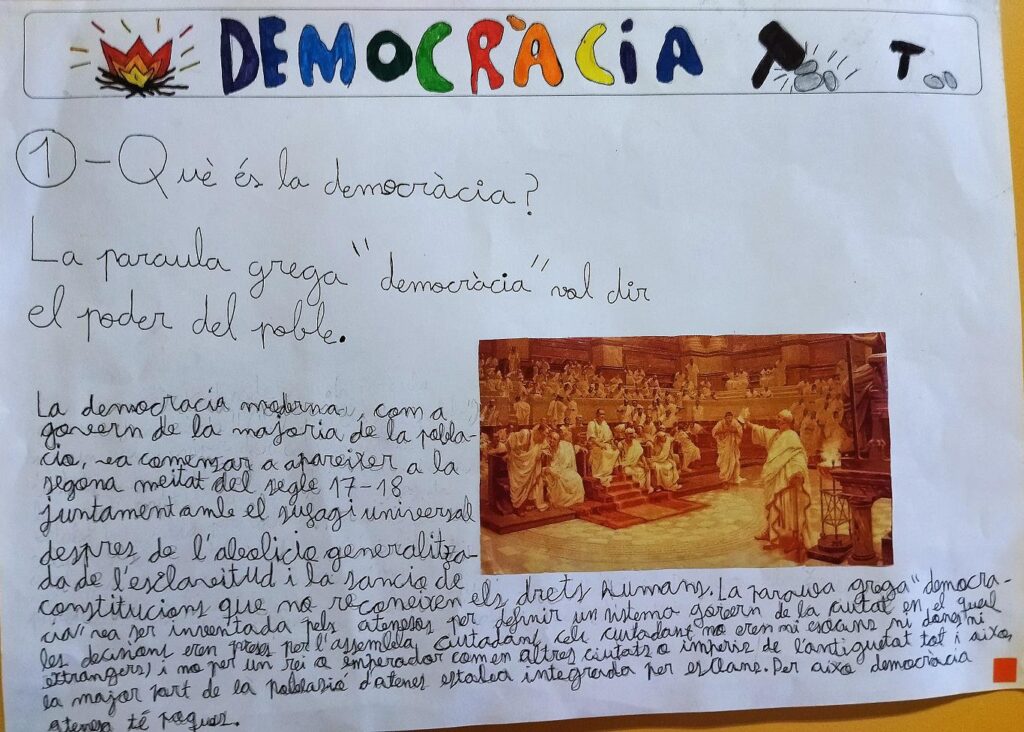 DEMOCRÀCIA
1 - Què és la democràcia?
La paraula grega "democràcia" val dir
el poder del poble.
La democracia moderna, com a
govern de la majoria de la pobla-
cio, va comensar a apareixer a la
segona meitat del segle 17-18
juntament amb el sufagi universal
despres de l'abolicio generalitza-
da de l'esclavitud i la sancio de
constitucions que no reconeixen els drets humans. La parauca grega "democra-
cia" va ser inventada pels atenesos per definir un sistema govern de la ciutat en el qual
les decisions eren preses per l'assemblea ciutadans cels ciutadans no eren ni esclaus ni dones ni
extrangers) i no per un rei o emperador com en altres ciutats o imperis de l'antiguetat tot i aixo,
la major part de la poblasió d'atenes estaba integrada per esclaus. Per aixo democràcia
atenesa té poques.